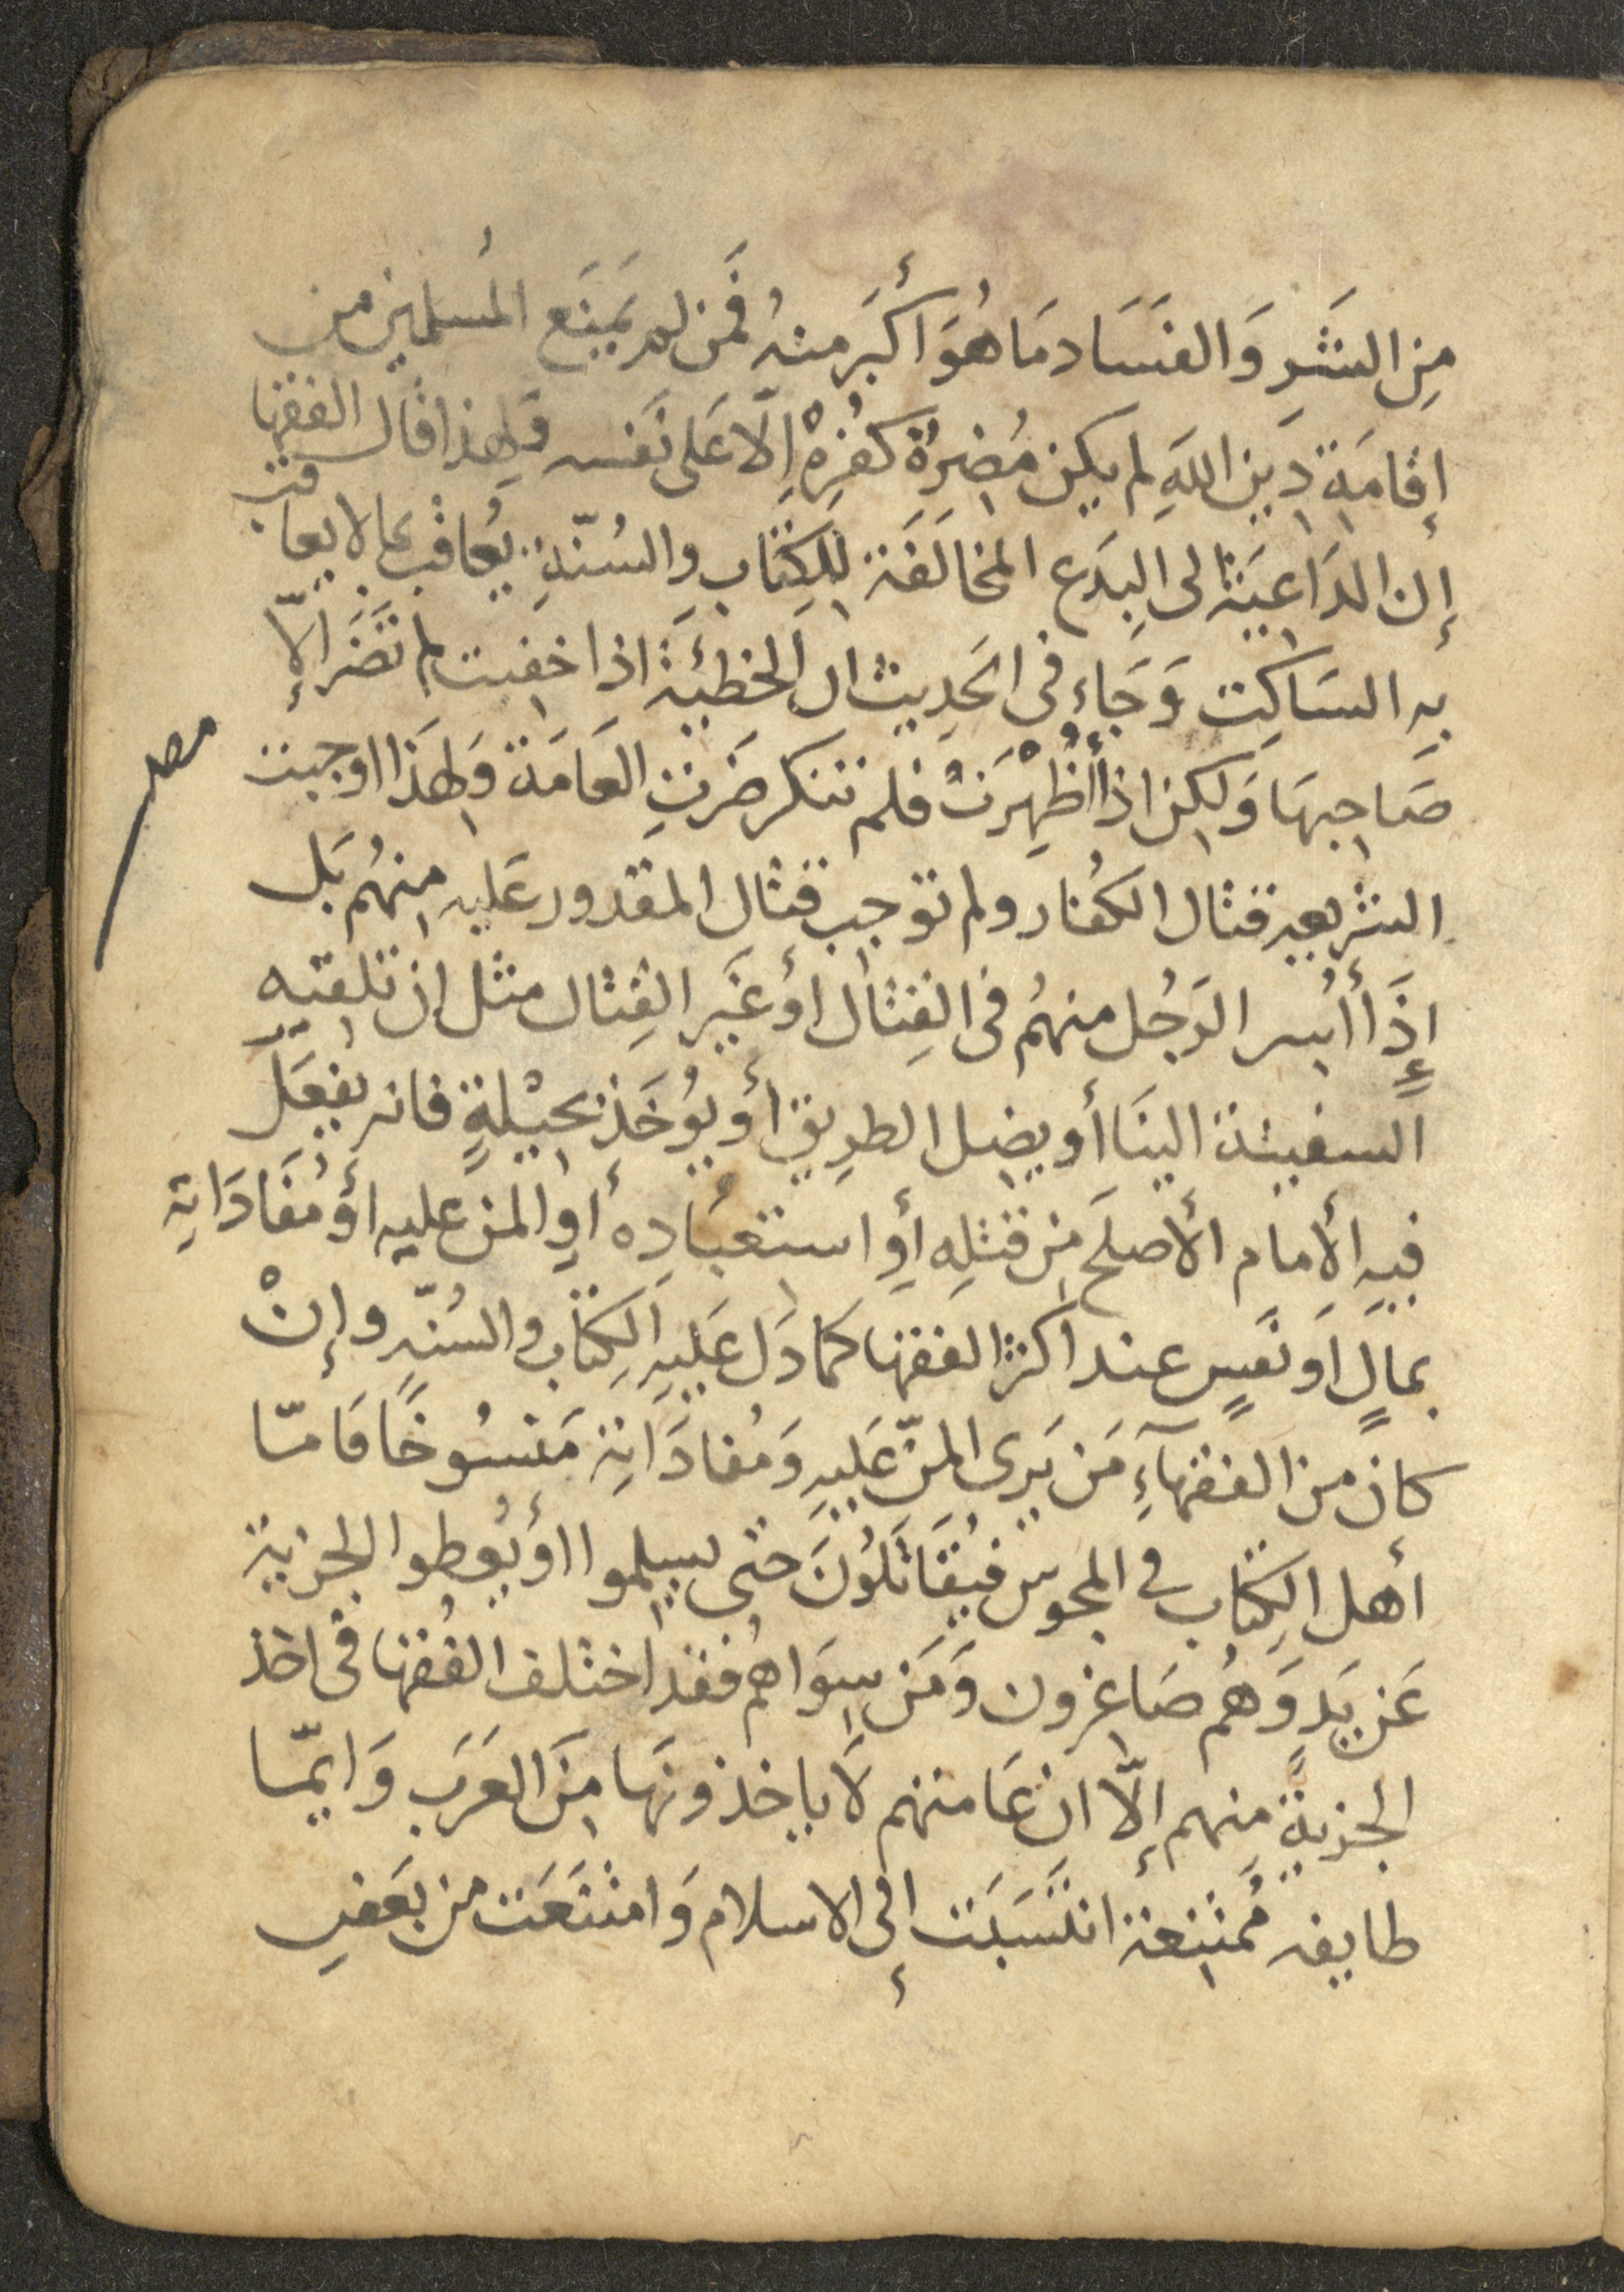 مِن الشَّرِ وَالفَسَاد مَا هُوَ أَكبَر مِنهُ فَمَن لم يَمنَع المُسلمين من
إقامَة دِين اللهِ لم يكن مُضِرَةُ كُفرِهْ إلّا عَلى نَفسه وَلِهذا قال الفقها
إن الدَاعيَة الى البِدَع المخالَفَة لِلكِتَاب والسُنّةِ يُعاقَب بما لا يعاقب
بِهِ السَاكِت وَجَاء فى الحَدِيث ان الخَطيئَة اذا خفيت لم تَضَر إلّا
صَاحِبهَا وَلكِن اذا أُظْهِرَتْ فلم تنكر ضَرتِ العَامَة وَلِهَذَا اوجبت
الشريعه قتال الكُفار ولم توجب قتال المقدور عَليه منهُم بَل
إِذَا أُسر الرَجُل منهُم فى القِتال أوْ غَير القِتال مثل إن تلقيه
السفينة الينَا أو يضل الطرِيق أو يُوخَذ بحِيْلةٍ فانه يفعَل
فيهِ الأمام الأصلَح من قتلِه أوِ استعبَادِه أوِ المن عليه أوْ مُفَادَاتِه
بمالٍ أو نَفسٍ عند اكثر الفقها كما دَل عَليهِ الكِتاب والسُنّهِ وإنْ
كان من الفقهآءِ مَن يَرى المنّ عَليهِ وَمُفادَاتِه مَنسُوخًا فَامّا
أهل الكِتاب و المجوس فيُقَاتَلُونَ حتى يسلموا أوْ يُعطوا الجزية
عَن يَدٍ وَهُم صَاغرون وَمَن سِوَاهُم فقد اختلف الفُقها فى اخذ
الجزيةِ منهم إلّا ان عَامتهم لَا ياخذونهَا مِنَ العَرَب وَايمّا
طايفه مُمتنعة انتسَبَت إلى الاسلام وَامتنَعَت من بَعَضِ